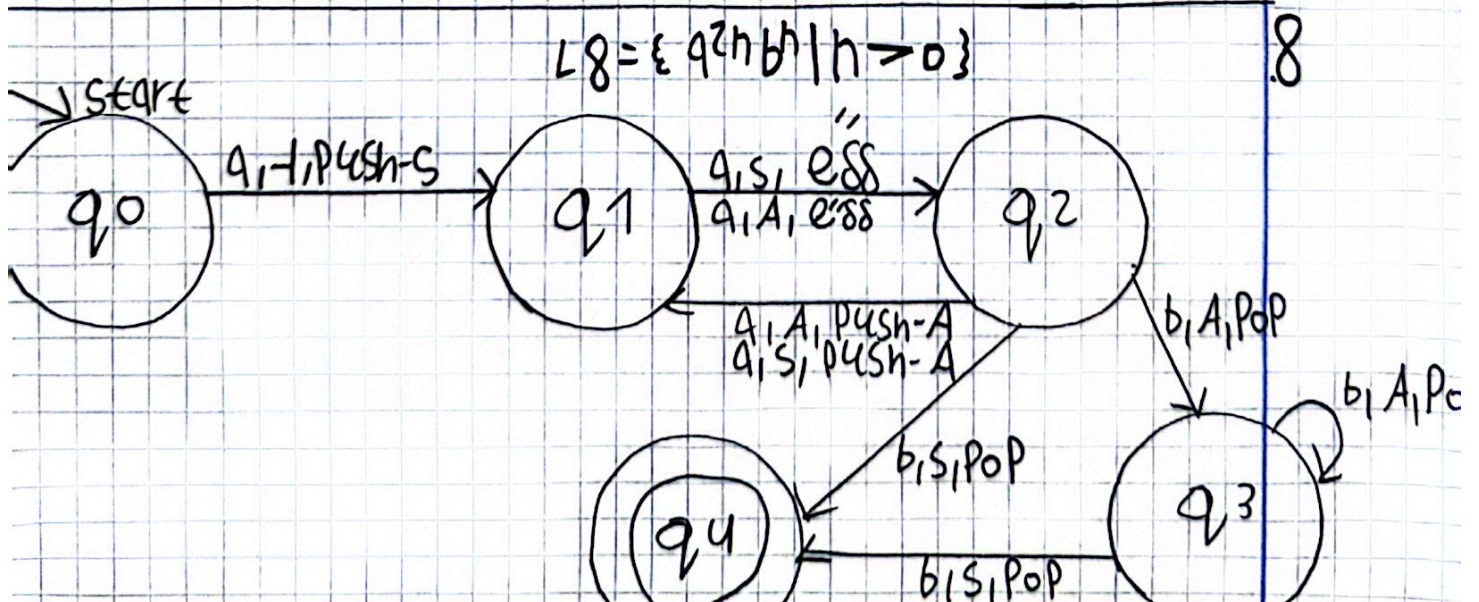 L8={a²ⁿbⁿ|n>0}
8.
start
a,⊣,push-S
a,S,
a,A,
q0
q1
q2
a,A,push-A
a,S,push-A
b,A,pop
b,A,po
b,S,pop
q3
q4
b,S,pop